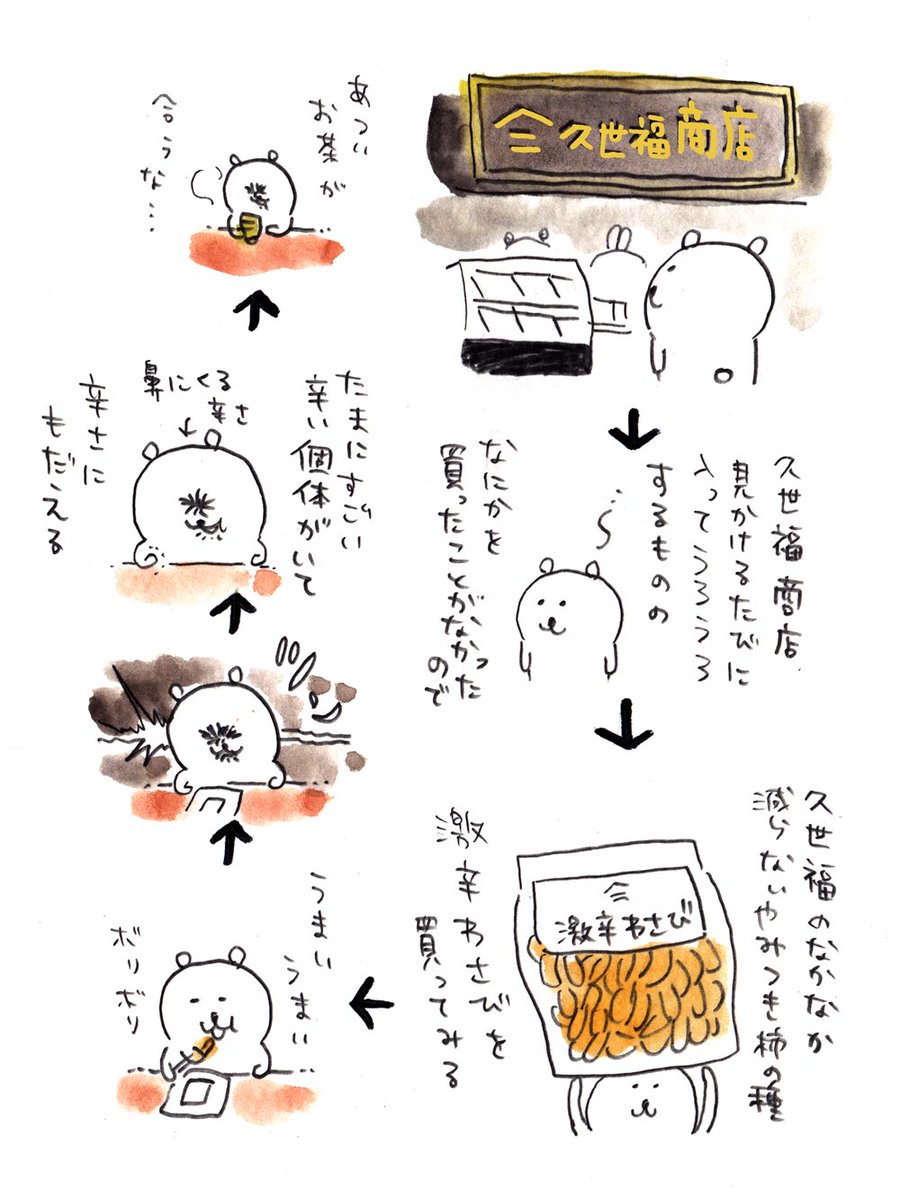 久世福商店
久世福商店
見かけるたびに
入ってうろうろ
するものの
なにかを
買ったことがなかった
ので
久世福のなかなか
減らないやみつき柿の種
激辛わさび
激辛わさびを
買ってみる
うまい
うまい
ボリボリ
たまにすごい
辛い個体がいて
鼻にくる
辛さ
辛さに
もだえる
あつい
お茶が
合うな…